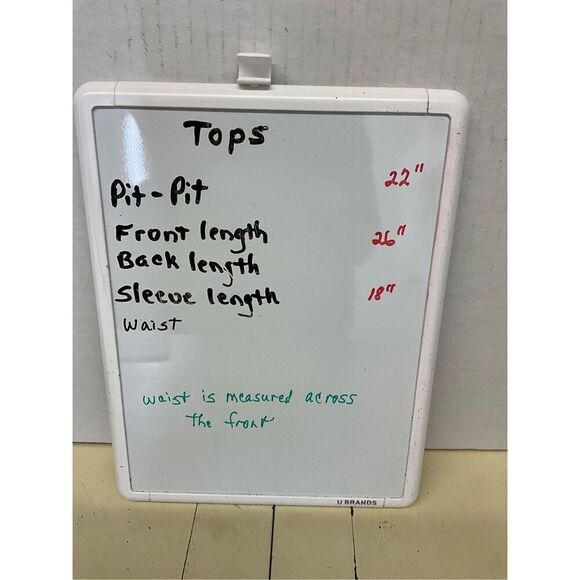 Tops
Pit-Pit 22"
Front length 26"
Back length
Sleeve length 18"
Waist
waist is measured across
the front
U BRANDS